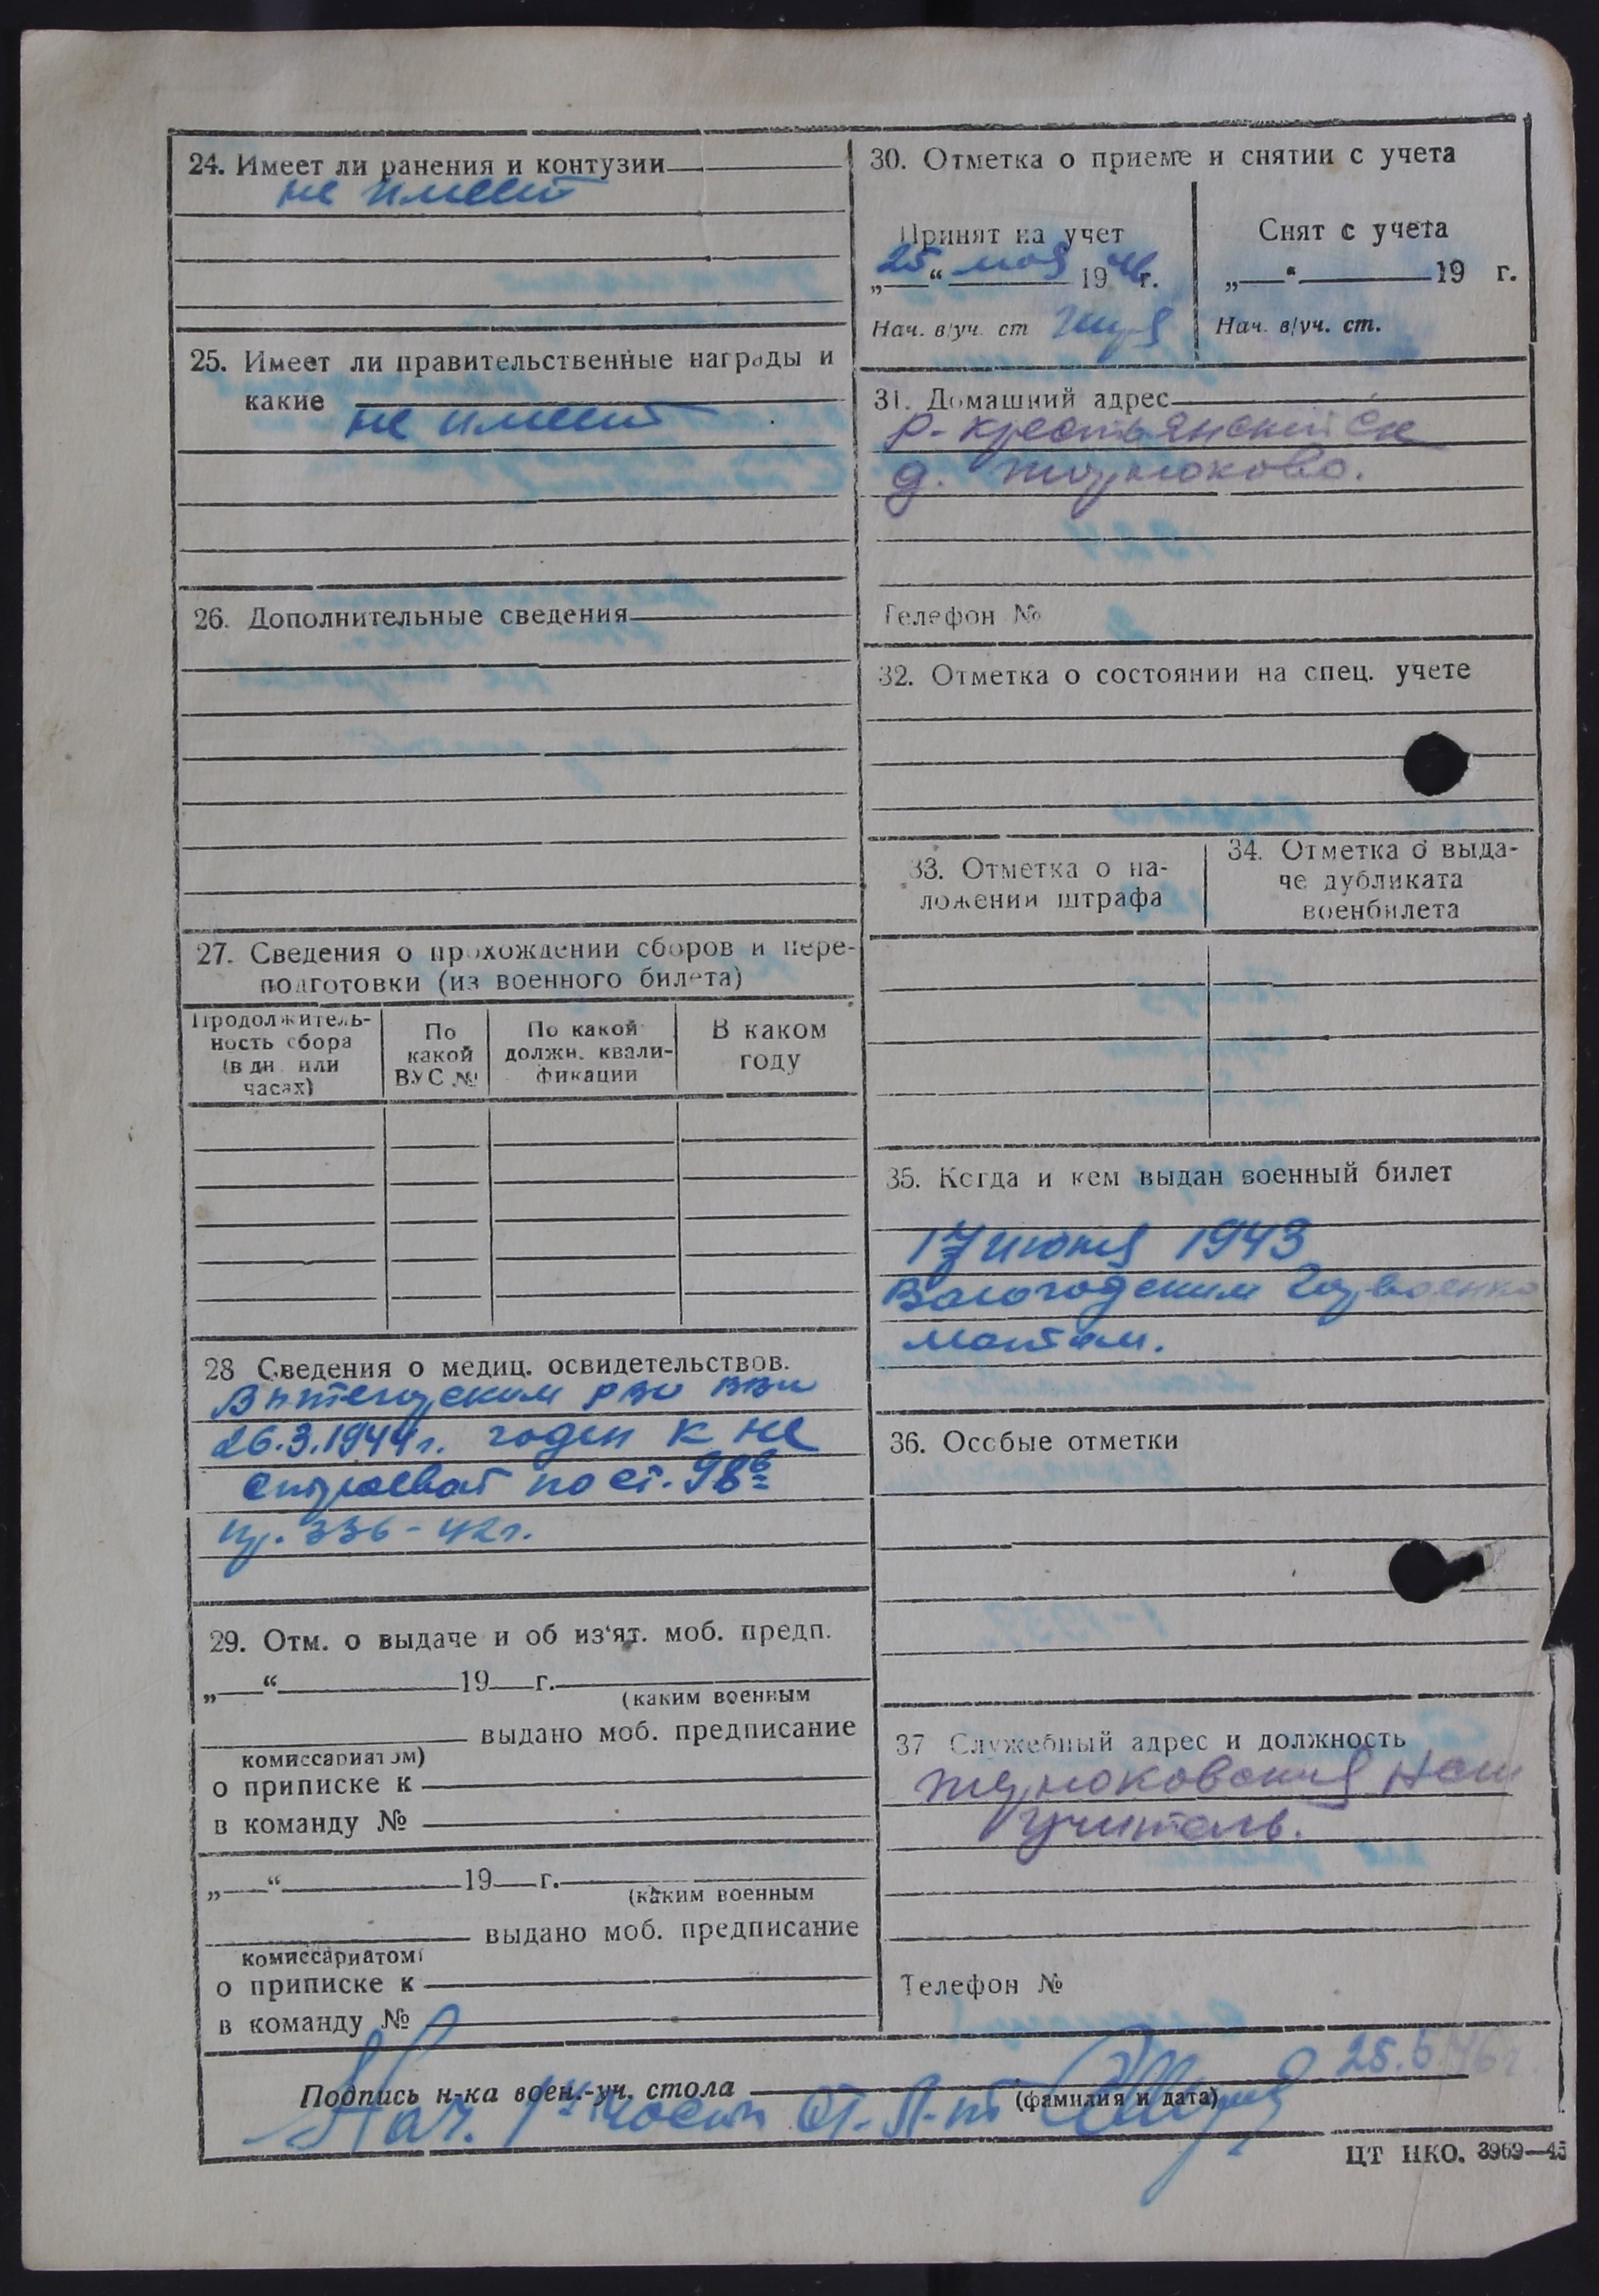 24. Имеет ли ранения и контузии
не имеет
25. Имеет ли правительственные награды и
какие
не имеет
26. Дополнительные сведения
27. Сведения о прохождении сборов и пере-
подготовки (из военного билета)
Продолжитель-
ность сбора
(в дн. или
часах)
По
какой
ВУС №
По какой
должн. квали-
фикации
В каком
году
28 Сведения о медиц. освидетельствов.
Вытегорским рво
26.3.1944г. годен к не
строевой по ст. 98б
пр. 336-42г.
29. Отм. о выдаче и об из'ят. моб. предп.
„ “ 19 г.
(каким военным
выдано моб. предписание
комиссариатом)
о приписке к
в команду №
„ “ 19 г.
(каким военным
выдано моб. предписание
комиссариатом)
о приписке к
в команду №
30. Отметка о приеме и снятии с учета
Принят на учет
„25“ мая 1946г.
Нач. в/уч. ст
Снят с учета
„ “ 19 г.
Нач. в/уч. ст.
31. Домашний адрес
р-крестьянский с/с
д.
Телефон №
32. Отметка о состоянии на спец. учете
33. Отметка о на-
ложении штрафа
34. Отметка о выда-
че дубликата
военбилета
35. Когда и кем выдан военный билет
17 июня 1943
Вологодским Горвоенко
матам.
36. Особые отметки
37 Служебный адрес и должность
учитель.
Телефон №
25.5.46г.
Подпись н-ка воен.-уч. стола
(фамилия и дата)
Нач. 1й части ст. л-нт
ЦТ НКО. 3969—45